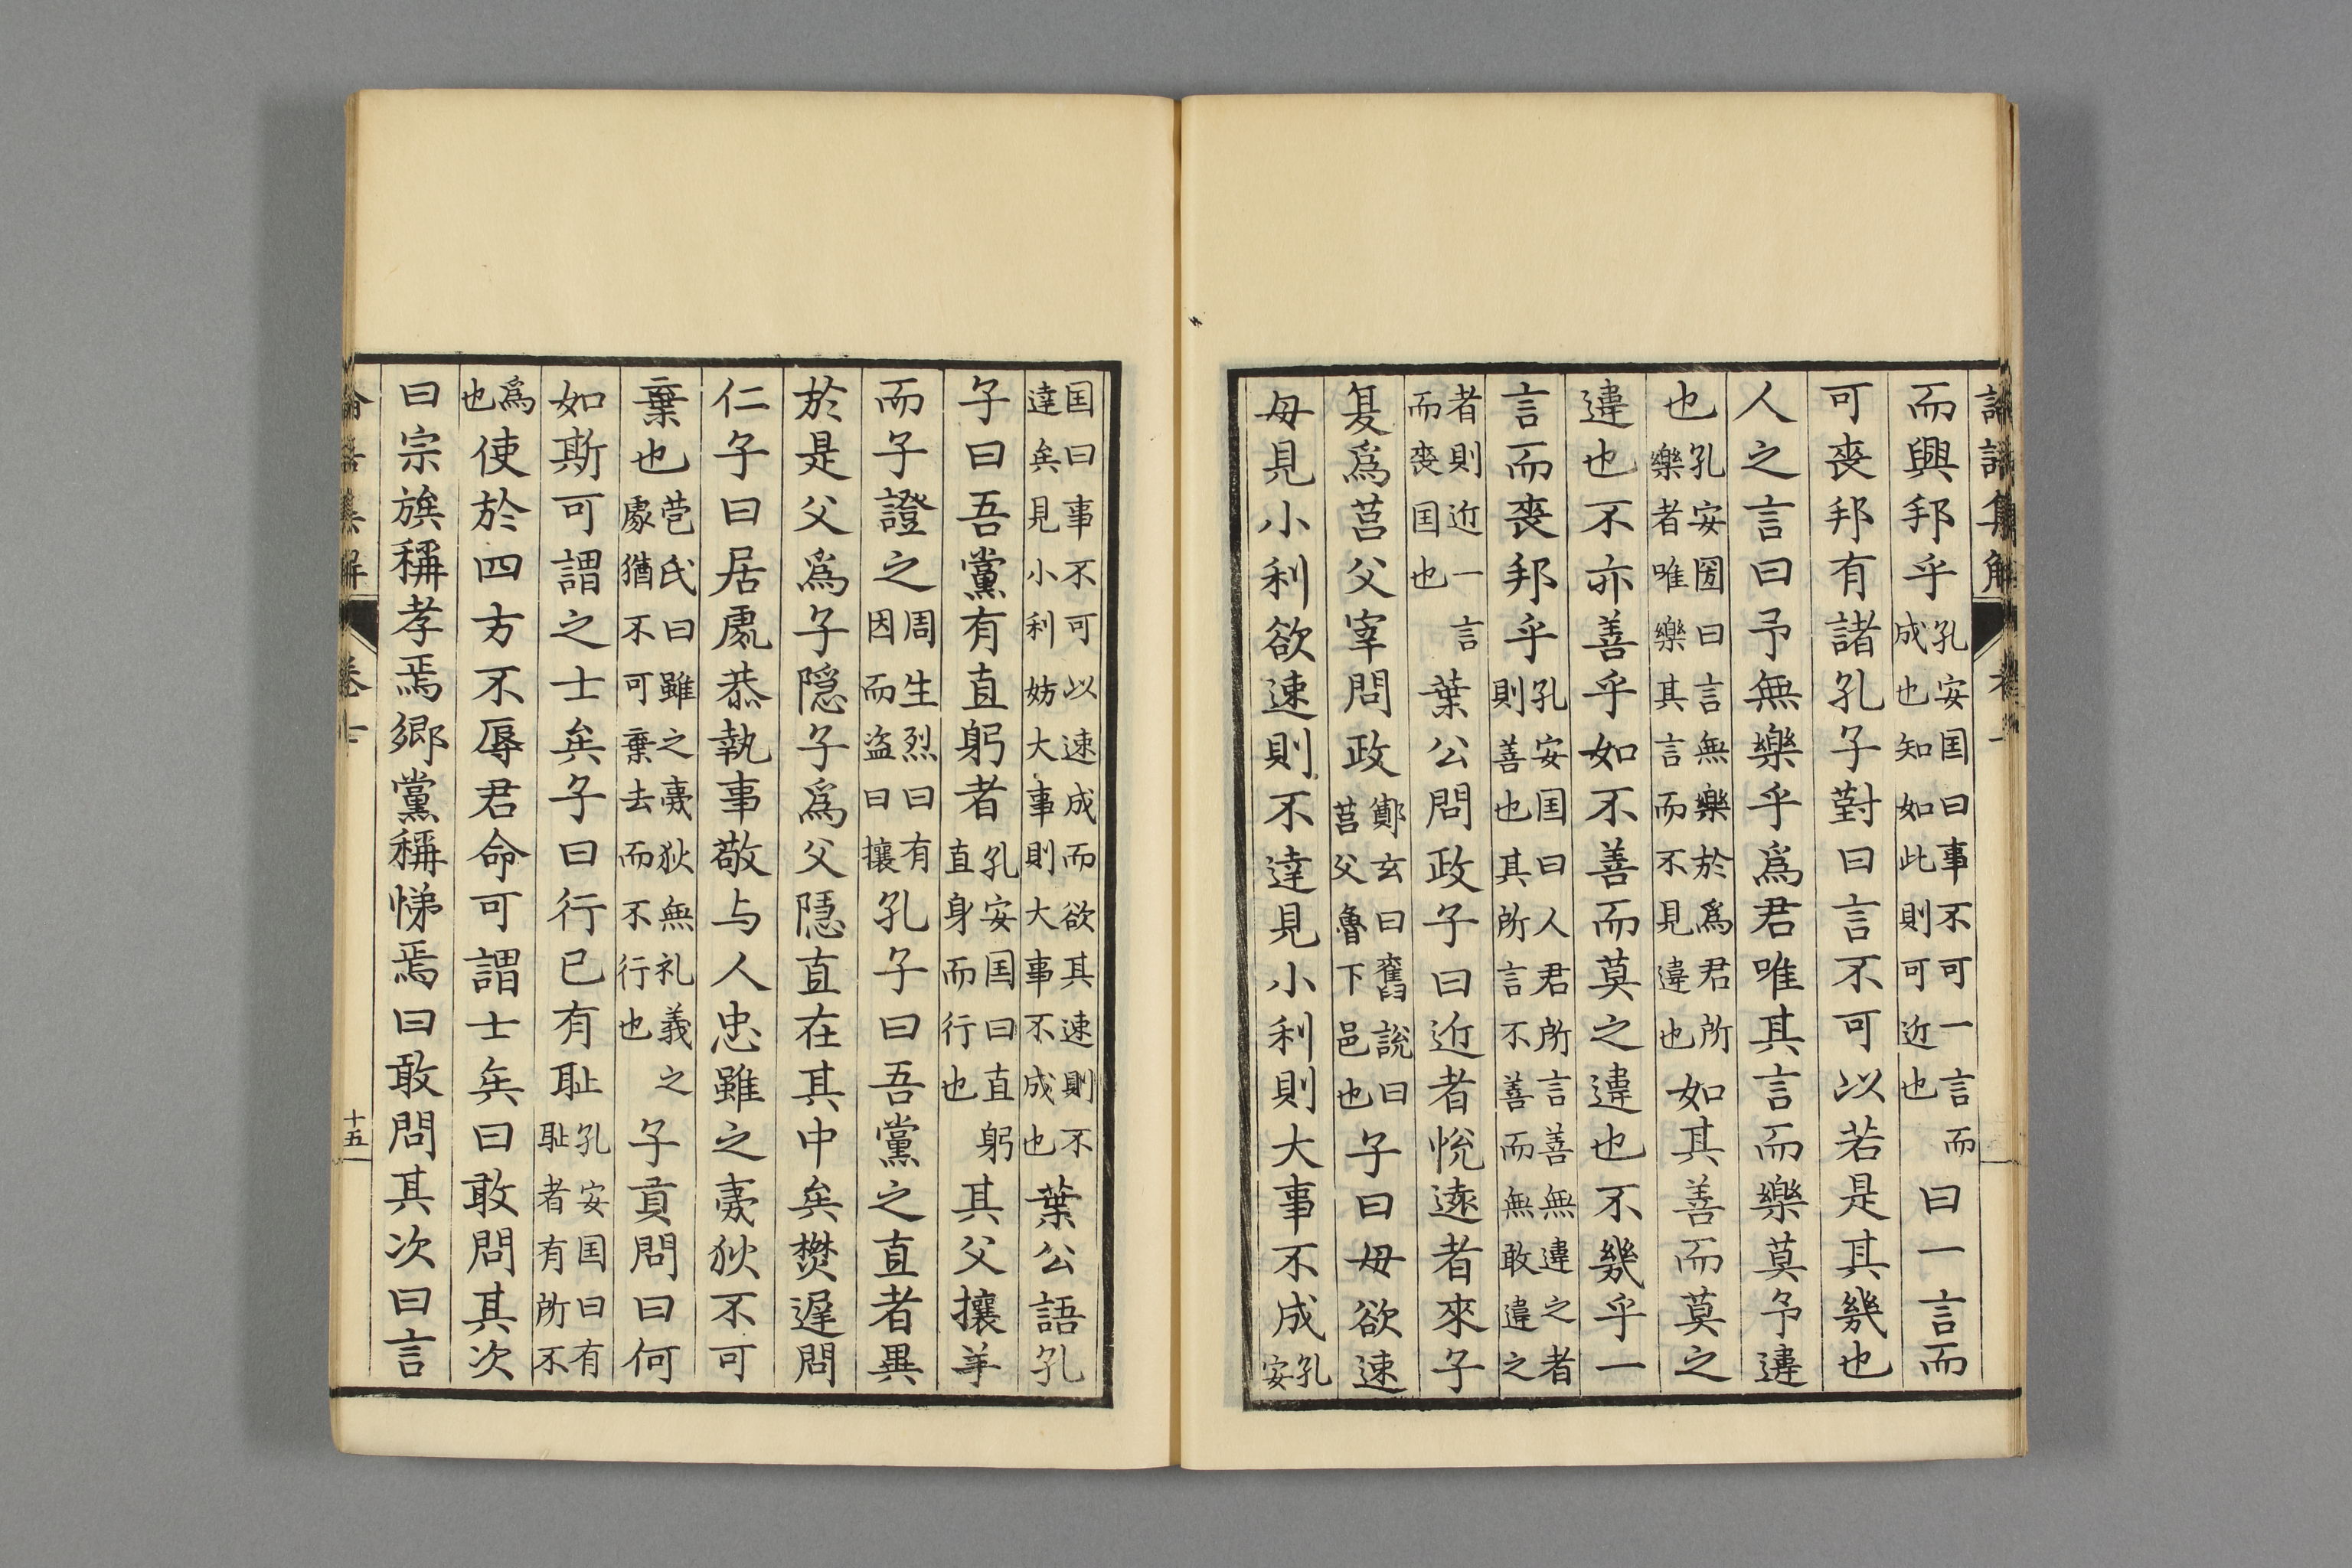 論語集解
而興邦乎孔安囯曰事不可一言而成也知如此則可近也曰一言而
可喪邦有諸孔子對曰言不可以若是其幾也
人之言曰予無樂乎爲君唯其言而樂莫予違
也孔安圀曰言無樂於爲君所樂者唯樂其言而不見違也如其善而莫之
違也不亦善乎如不善而莫之違也不幾乎一
言而喪邦乎孔安囯曰人君所言善無違之者則善也其所言不善而無敢違之
者則近一言而喪囯也葉公問政子曰近者悅遠者來子
夏爲莒父宰問政鄭玄曰舊說曰莒父魯下邑也子曰毋欲速
毋見小利欲速則不達見小利則大事不成孔安
囯曰事不可以速成而欲其速則不達矣見小利妨大事則大事不成也葉公語孔
子曰吾黨有直躬者孔安囯曰直躬直身而行也其父攘羊
而子證之周生烈曰有因而盗曰攘孔子曰吾黨之直者異
於是父爲子隱子爲父隱直在其中矣樊遅問
仁子曰居處恭執事敬与人忠雖之夷狄不可
棄也苞氏曰雖之夷狄無礼義之處猶不可棄去而不行也子貢問曰何
如斯可謂之士矣子曰行已有耻孔安囯曰有耻者有所不
爲也使於四方不辱君命可謂士矣曰敢問其次
曰宗族稱孝焉郷黨稱悌焉曰敢問其次曰言
論語集解 卷七
十五